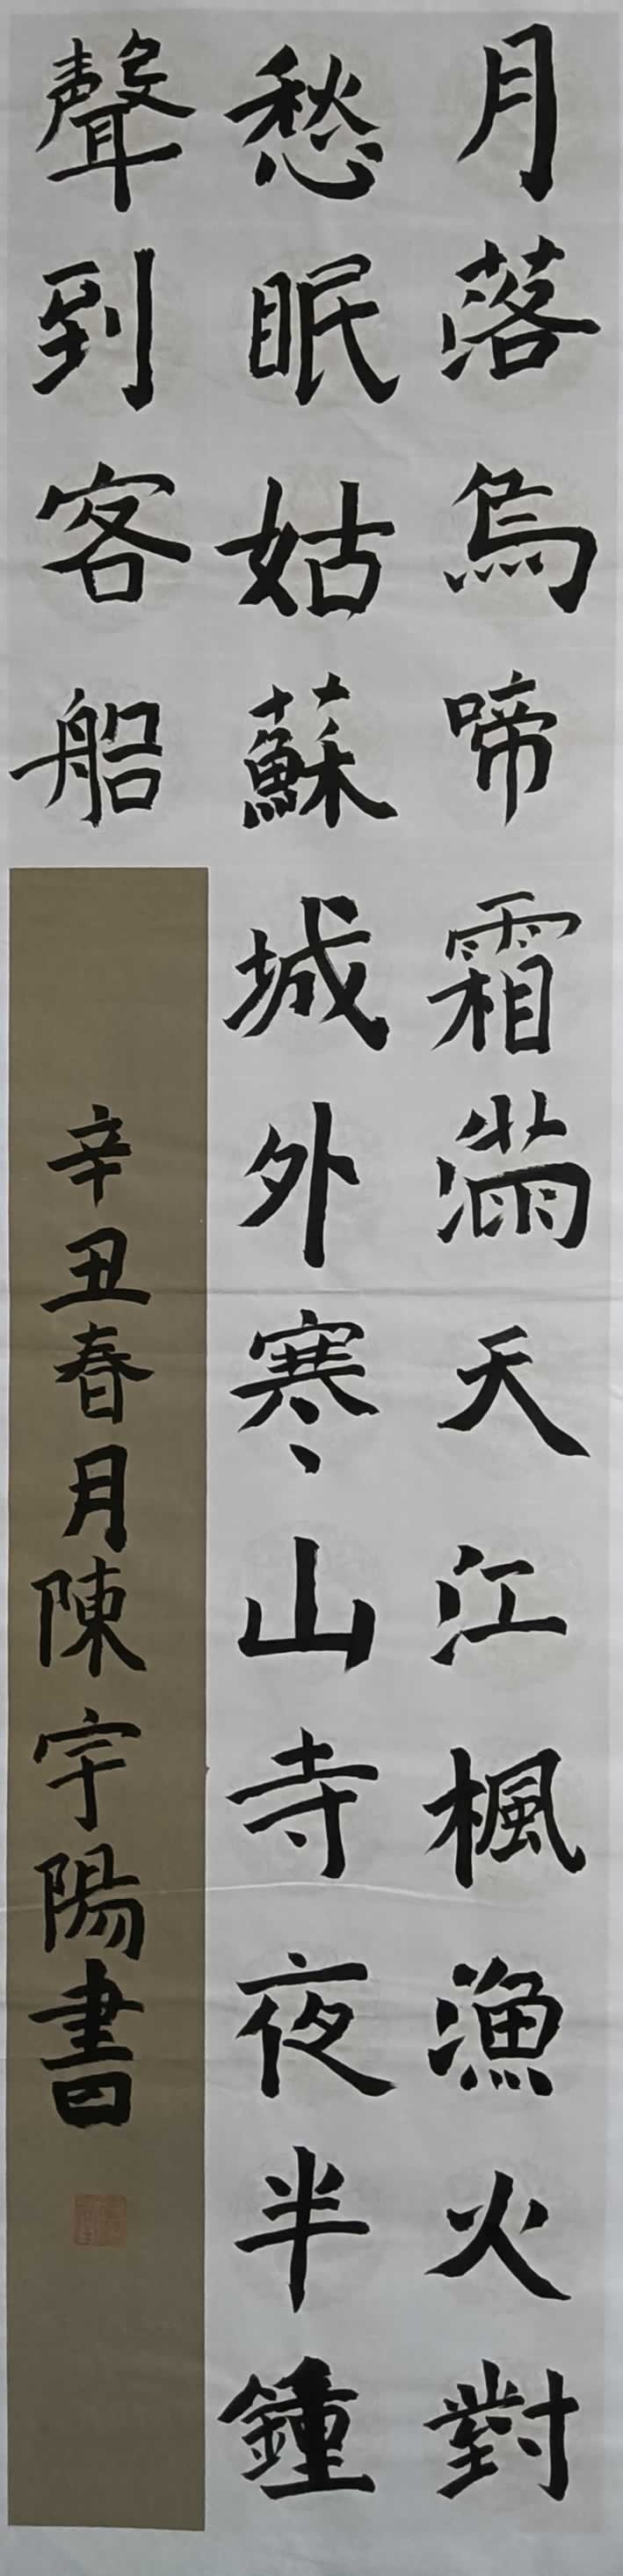 月落烏啼霜滿天江楓漁火對
愁眠姑蘇城外寒山寺夜半鍾
聲到客船
辛丑春月陳宇陽書